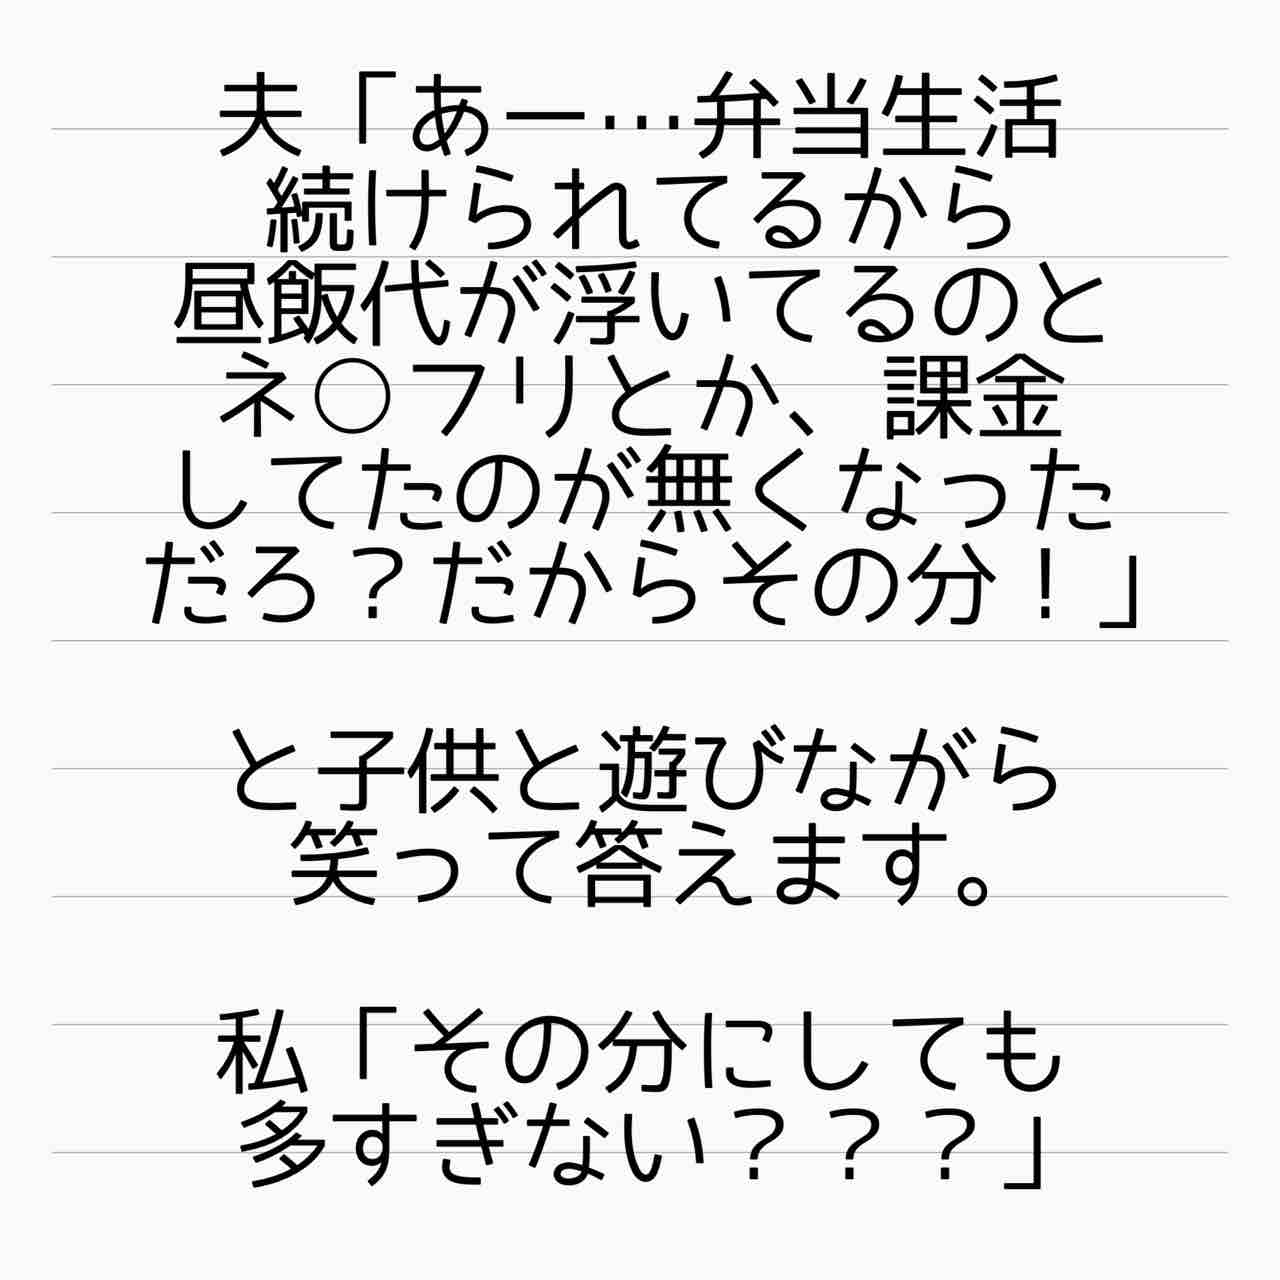 夫「あー…弁当生活
続けられてるから
昼飯代が浮いてるのと
ネ○フリとか、課金
してたのが無くなった
だろ？だからその分！」
と子供と遊びながら
笑って答えます。
私「その分にしても
多すぎない？？？」